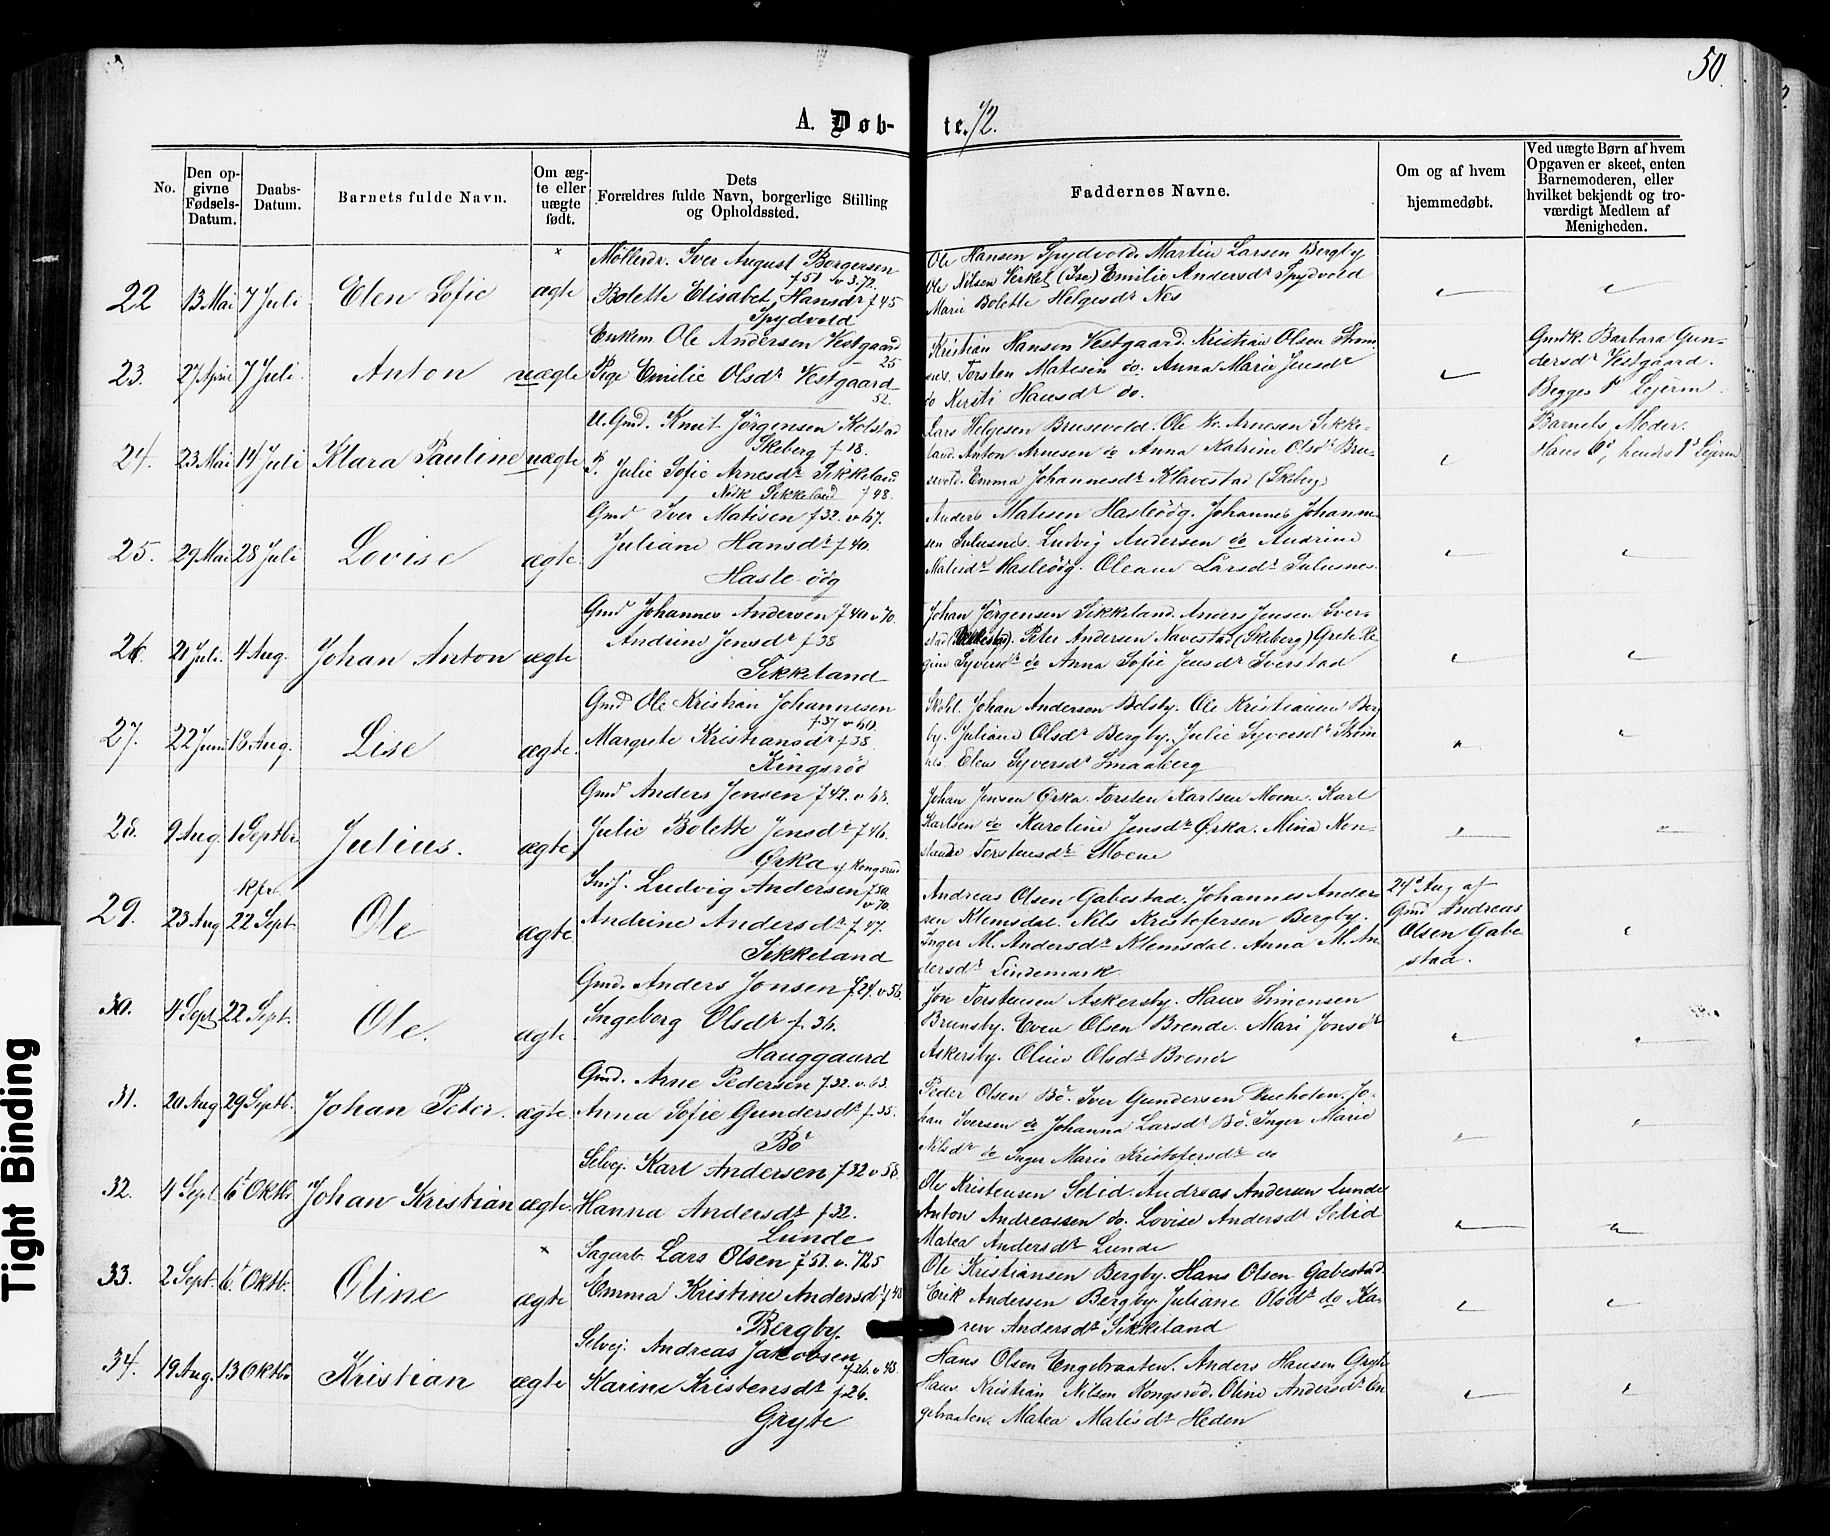 50.
A. Døb-
te. 72.
No.
Den op-
givne
Fødsels-
Datum.
Daabs-
Datum.
Barnets fulde Navn.
Om æg-
te eller
uægte
født.
Dets
Forældres fulde Navn, borgerlige Stilling
og Opholdssted.
Faddernes Navne.
Om og af hvem
hjemmedøbt.
Ved uægte Børn af hvem
Opgaven er skeet, enten
Barnemoderen, eller
hvilket bekjendt og tro-
værdigt Medlem af
Menigheden.
22 13 Mai 7 Juli Elen Sofie ægte
Möllerdr. Iver August Borgersen
f 51 v 3.72.
Bolette Elisabet Hansdr f 45
Spydvold
Ole Hansen Spydvold. Martin Larsen Bergby
Ole Nilsen Virket (Ise) Emilie Andersdr Spydvold
Marie Bolette Helgesdr Nes
23. 27 April 7 Juli. Anton uægte
Enkem Ole Andersen Vestgaard
25
Pige Emilie Olsdr Vestgaard
52.
Kristian Hansen Vestgaard. Kristian Olsen Ström
nes. Torsten Matisen do. Anna Marie Jensdr
do Kersti Hansdr do.
Gmdk. Barbara Gun-
dersdr Vestgaard.
Begges 1s Lejerm
24. 23 Mai 14 Juli Klara Pauline uægte
U. Gmd. Knut Jörgensen Kolstad
Skeberg f 18.
P. Julie Sofie Arnesdr Sikkeland
Nedk Sikkeland f 48.
Lars Helgesen Brusevold. Ole Kr. Arnesen Sikke-
land. Anton Arnesen do Anna Katrine Olsdr Bru-
sevold. Emma Johannesdr Klavestad (Skeberg)
Barnets Moder.
Hans 6s, hendes 1s Lejerm
25. 29 Mai 28 Juli Lovise ægte.
Gmd Iver Matisen f 32. v 67.
Juliane Hansdr f 40.
Hasle ödg
Anders Matisen Hasleödg. Johannes Johanne-
sen Sulusnes. Ludvig Andersen do Andrine
Matisdr Hasleödg. Oleane Larsdr Sulusnes.
26. 21 Juli. 4 Aug. Johan Anton ægte
Gmd Johannes Andersen f 40 v 70.
Andrine Jensdr f 38
Sikkeland
Johan Jörgensen Sikkeland. Anders Jensen Sver-
stad. Peter Andersen Navestad (Skeberg) Grete Re-
gine Syversdr do Anna Sofie Jensdr Sverstad
27. 22 Juni 18 Aug. Lise ægte.
Gmd Ole Kristian Johannesen
f. 37 v 60.
Margrete Kristiansdr f 38.
Kingsröd
Skohl. Johan Andersen Belsby. Ole Kristiansen Ber
by. Juliane Olsdr Bergby. Julie Syversdr Ström
nes. Elens Syversdr Smaaberg
28. 9 Aug. 1 Septbr. Julius. ægte
Gmd Anders Jensen f 42. v 68.
Julie Bolette Jensdr f 46.
Örka
Johan Jensen Örka. Torsten Karlsen Moene. Karl
Karlsen do Karoline Jensdr Örka. Mina Kon-
stanse Torstensdr Moene
29. 23 Aug 22 Sept. Ole ægte.
Indf. Ludvig Andersen f 50.
v 70.
Andrine Andersdr f. 47.
Sikkeland
Andreas Olsen Gabestad. Johannes Ander-
sen Klemsdal. Nils Kristofersen Bergby.
Inger M. Andersdr Klemsdal. Anna M. An-
dersdr Lindemark
24s Aug af
Gmd Andreas
Olsen Gabe-
stad.
30. 4 Sept 22 Sept. Ole. ægte
Gmd. Anders Jonsen f 24. v 56.
Ingeborg Olsdr f. 36.
Hauggaard
Jon Torstensen Askersby. Hans Simensen
Brunsby. Even Olsen Brende. Mari Jonsdr
Askersby. Oline Olsdr Brende
31. 20 Aug. 29 Septb. Johan Peter. ægte.
Gmd. Arne Pedersen f 32. v. 63.
Anna Sofie Gundersdr f. 35.
Bö
Peder Olsen Bö. Iver Gundersen Dueholen. Jo-
han Iversen do Johanna Larsdr Bö. Inger Marie
Nilsdr do Inger Marie Kristofersdr do
32. 4 Sept. 6t Oktbr Johan Kristian ægte.
Selvej. Karl Andersen f 32 v. 58.
Hanna Andersdr f 32.
Lunde
Ole Kristensen Selid. Andreas Andersen Lunde
Anton Andreassen do. Lovise Andersdr Selid
Matea Andersdr Lunde
33. 2 Sept. 6t Oktb. Oline ægte
Sagarb. Lars Olsen f 51. v. 72 5
Emma Kristine Andersdr f 48
Bergby.
Ole Kristiansen Bergby. Hans Olsen Gabestad.
Erik Andersen Bergby. Juliane Olsdr do Ka-
ren Andersdr Sikkeland
34. 19 Aug. 13 Oktbr Kristian ægte
Selvej. Andreas Jakobsen
f 26. v 48.
Karine Kristensdr f 26.
Gryte
Hans Olsen Engebraaten. Anders Hansen Gryte
Hans Kristian Nilsen Kongsröd. Oline Andersdr En
gebraaten. Matea Matisdr Heden
Tight Binding